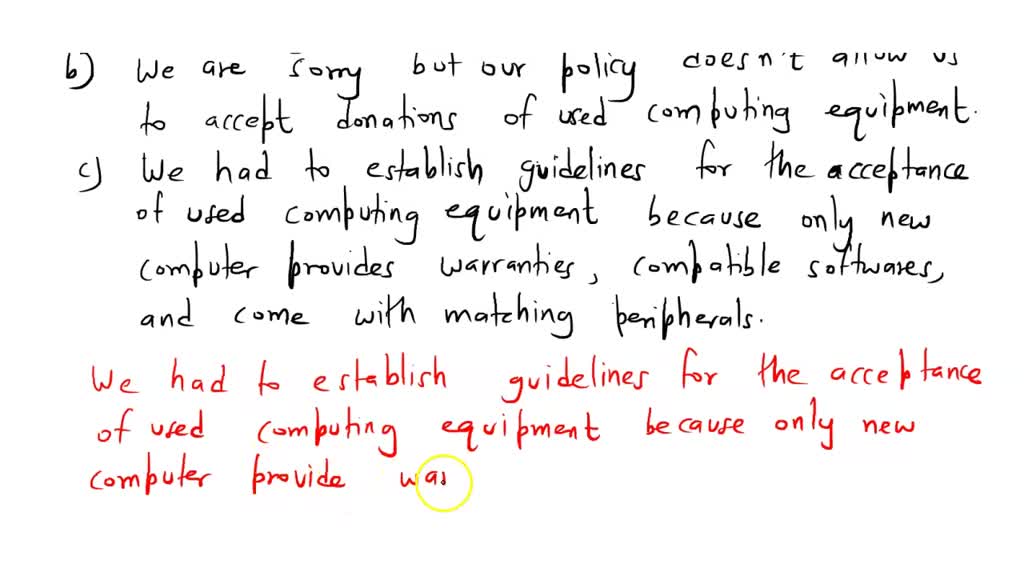 b) We are sorry but our policy doesn't allow us
to accept donations of used computing equipment.
c) We had to establish guidelines for the acceptance
of used computing equipment because only new
computer provides warranties, compatible softwares,
and come with matching peripherals.
We had to establish guidelines for the acceptance
of used computing equipment because only new
computer provide wa